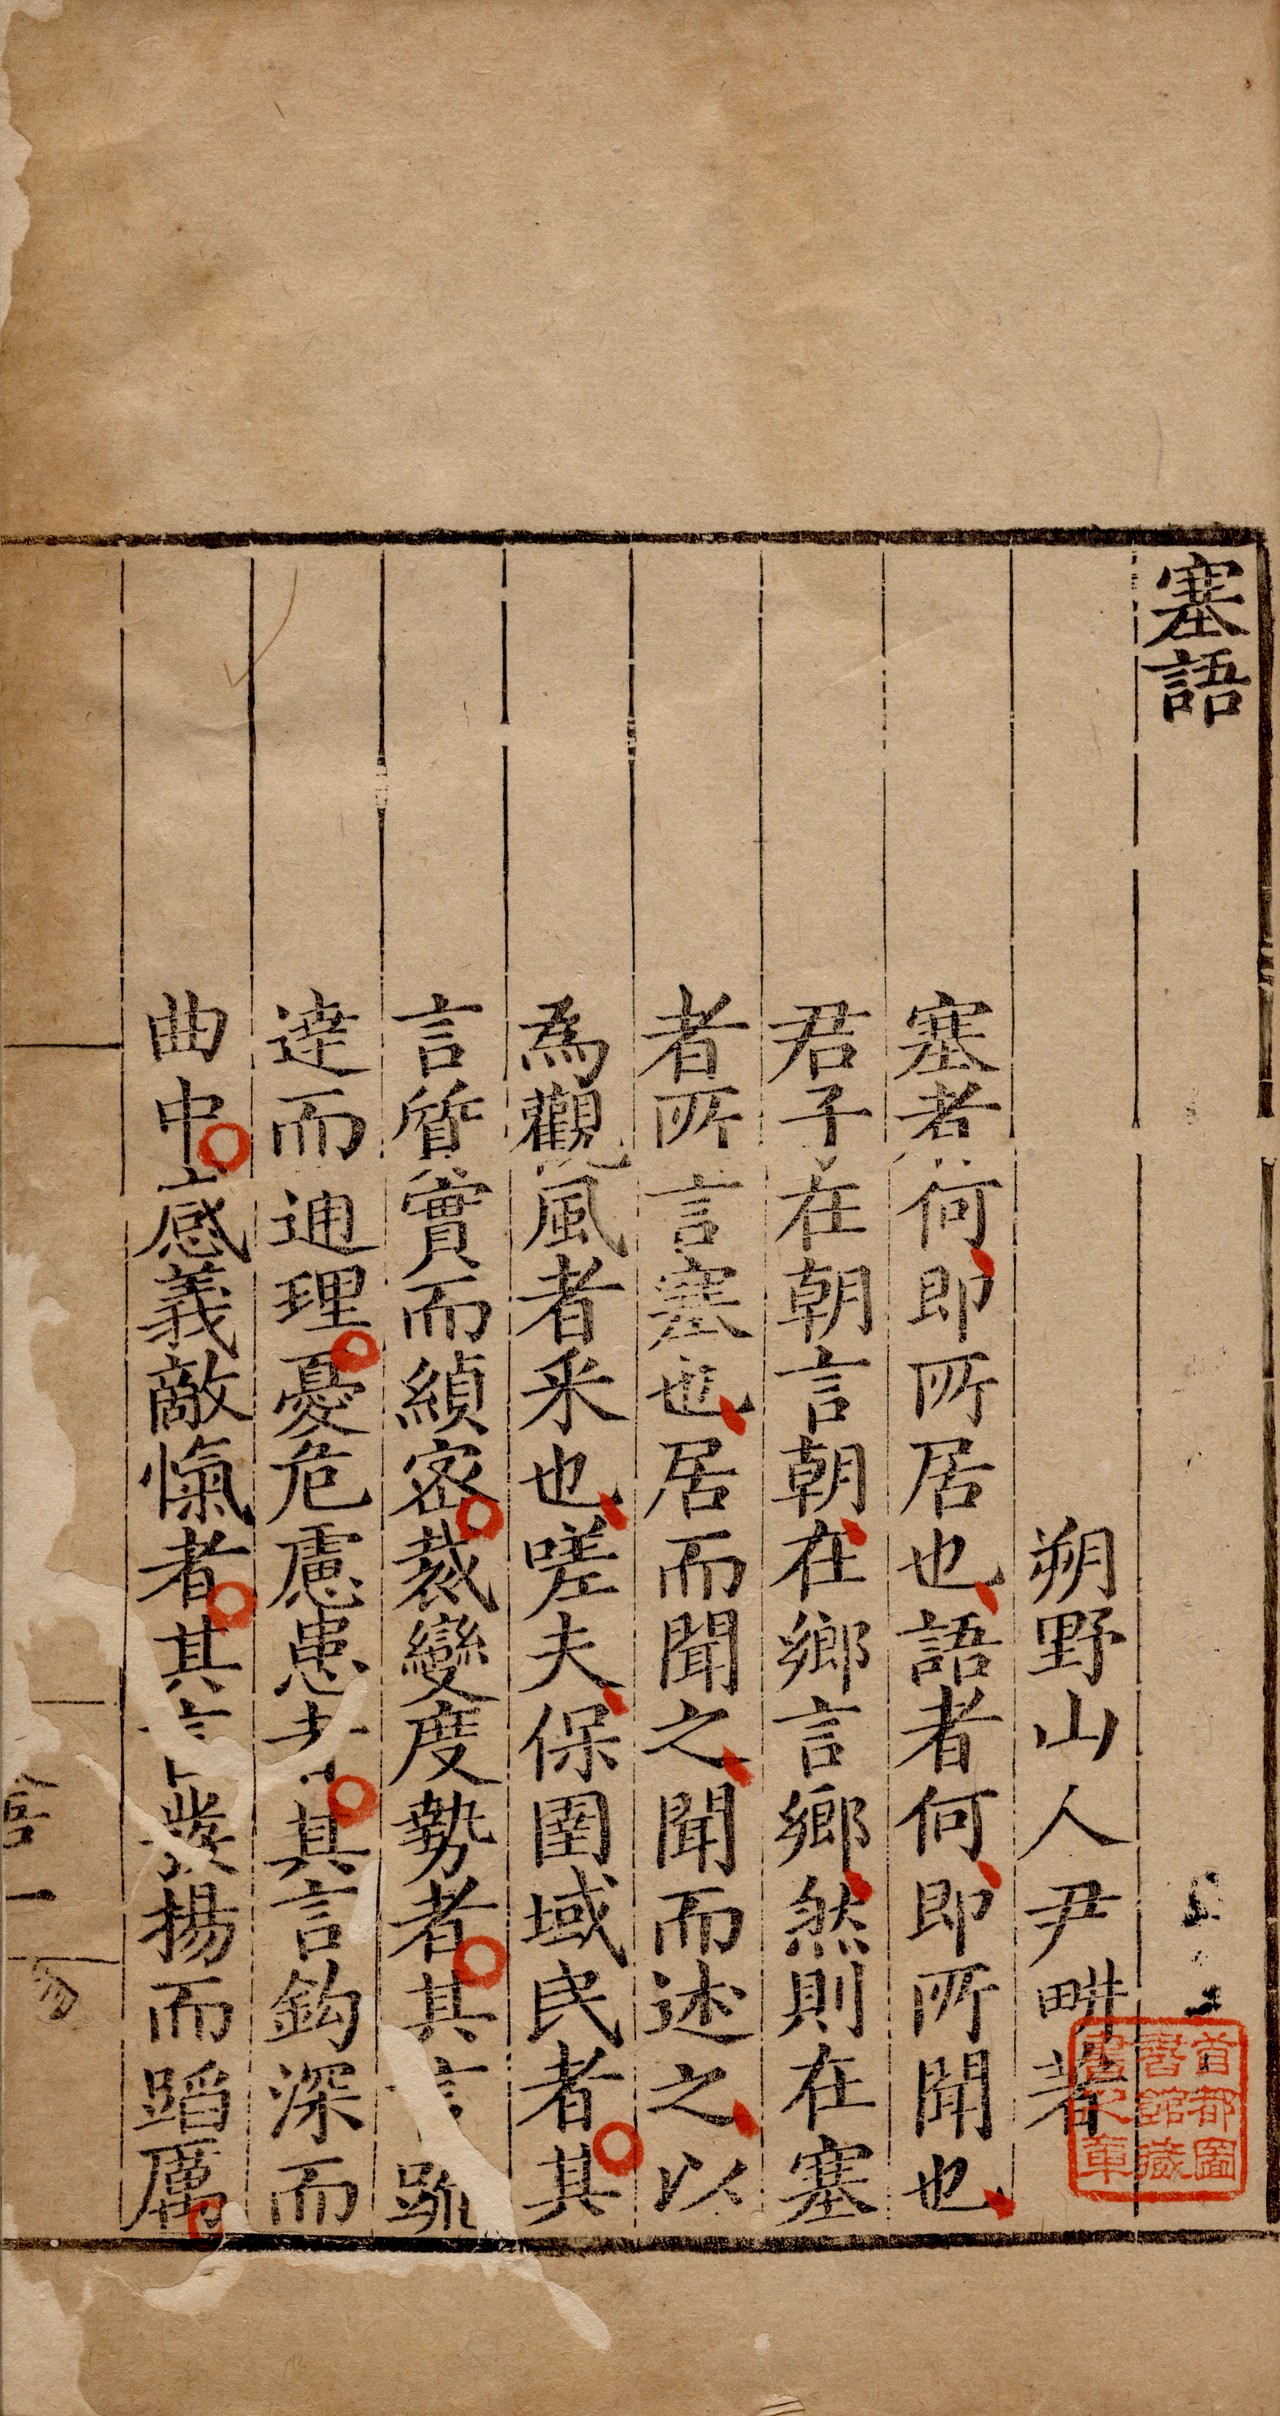 塞語
朔野山人尹畊著
塞者何即所居也語者何即所聞也
君子在朝言朝在鄉言鄉然則在塞
者所言塞也居而聞之聞而述之以
為觀風者采也嗟夫保圉域民者其
言質實而縝密裁變度勢者其言踈
達而通理憂危慮患者其言鈎深而
曲中感義敵愾者其言發揚而蹈厲
首都圖
書館藏
書之章
語 一